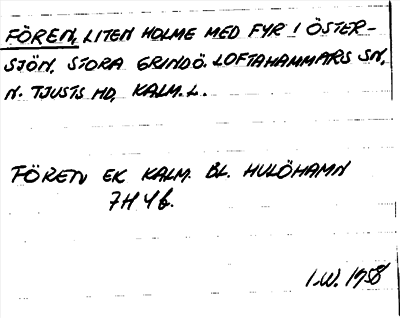 FÖREN, LITEN HOLME MED FYR I ÖSTER-
SJÖN, STORA GRINDÖ. LOFTAHAMMARS SN,
N. TJUSTS HD, KALM. L.
FÖREN EK KALM. BL. HULÖHAMN
7H 4b.
I.W. 1958